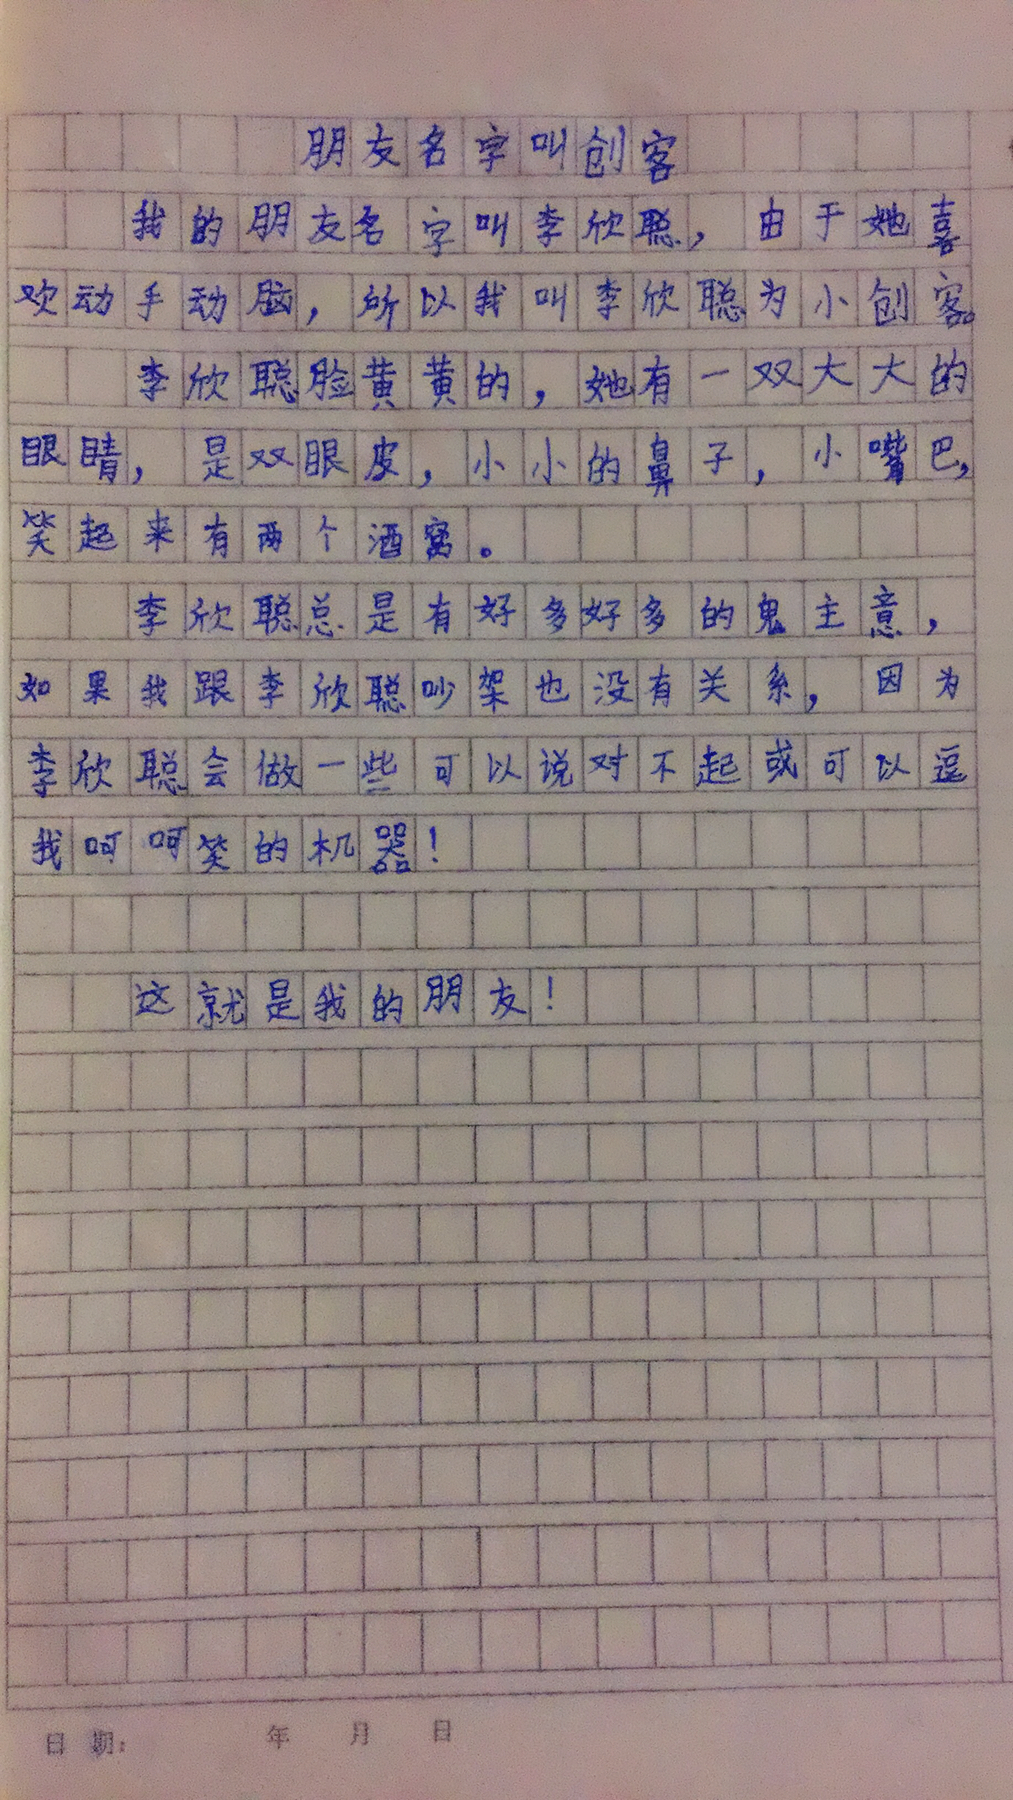 朋友名字叫创客
我的朋友名字叫李欣聪，由于她喜
欢动手动脑，所以我叫李欣聪为小创客。
李欣聪脸黄黄的，她有一双大大的
眼睛，是双眼皮，小小的鼻子，小嘴巴，
笑起来有两个酒窝。
李欣聪总是有好多好多的鬼主意，
如果我跟李欣聪吵架也没有关系，因为
李欣聪会做一些可以说对不起或可以逗
我呵呵笑的机器！
这就是我的朋友！
日期： 年 月 日